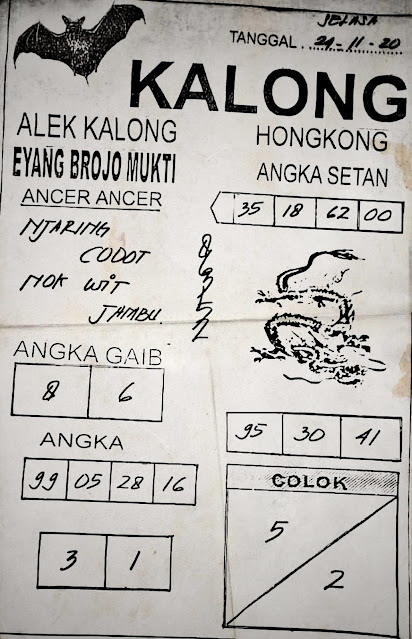 SELASA
TANGGAL . 24-11-20
KALONG
ALEK KALONG
EYANG BROJO MUKTI
ANCER ANCER
NJARING
CODOT
NOK WIT
JAMBU
HONGKONG
ANGKA SETAN
35 18 62 00
ANGKA GAIB
8 6
ANGKA
99 05 28 16
3 1
95 30 41
COLOK
5
2